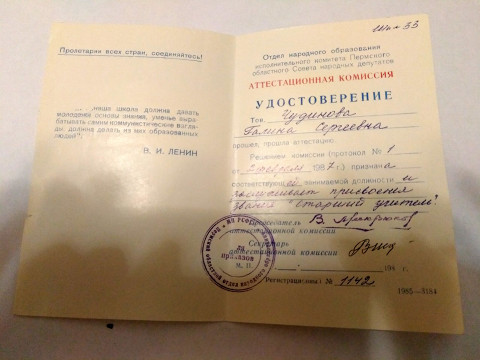 Пролетарии всех стран, соединяйтесь!
школа должна давать
молодежи основы знания, уменье выра-
батывать самим коммунистические взгля-
ды, должна делать из них образованных
людей".
В. И. ЛЕНИН
Отдел народного образования
исполнительного комитета Пермского
областного Совета народных депутатов
АТТЕСТАЦИОННАЯ КОМИССИЯ
УДОСТОВЕРЕНИЕ
Тов. Чудинова
Галина Сергеевна
прошел, прошла аттестацию.
Решением комиссии (протокол № 1
от 2 февраля 1987 г.) признана
соответствующей занимаемой должности и
заслуживает присвоения
звания "старший учитель".
Председатель
аттестационной комиссии
Секретарь
аттестационной комиссии
М. П.
198 г.
Регистрационный № 1142
1985—3184